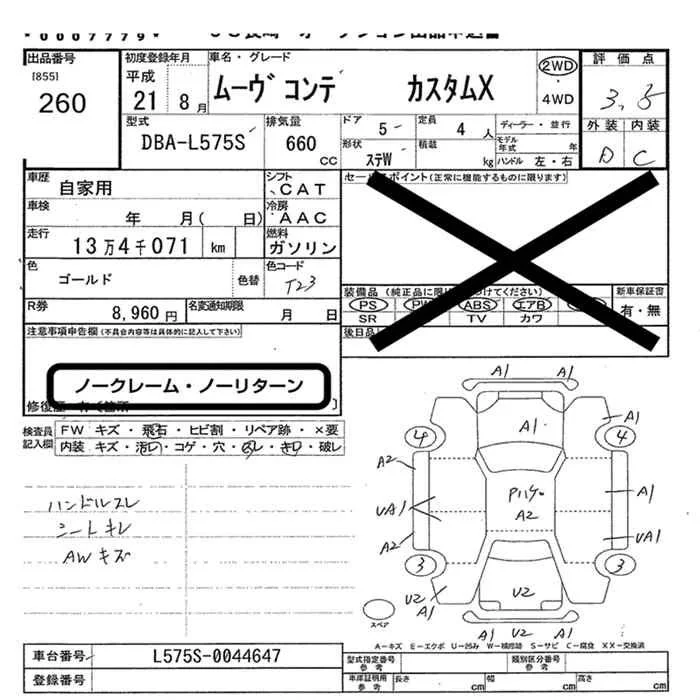 *0007779*
出品番号 [855] 260
初度登録年月 平成 21 8月
車名・グレード ムーヴ コンテ カスタムX
2WD 4WD
評価点 3.5
外装 内装
D C
型式 DBA-L575S
排気量 660 CC
ドア 5
定員 4 人
形状 ステW
積載 kg
ディーラー・並行
モデル年式 年
ハンドル 左・右
車歴 自家用
シフト CAT
車検 年 月( 日)
冷房 AAC
走行 13万4千071 km
燃料 ガソリン
色 ゴールド 色替
色コード T23
R券 8,960円
名変通知期限 月 日
(正常に機能するものに限ります)
装備品
PS ABS エアB
SR TV カワ
新車保証書 有・無
後日品
注意事項申告欄(不具合内容等は具体的に記入して下さい)
ノークレーム・ノーリターン
検査員記入欄
FW キズ・飛石・ヒビ割・リペア跡・×要
内装 キズ・汚れ・コゲ・穴・・・破レ
ハンドルスレ
シートキレ
AWキズ
A1 A1
A1 A1
4 4
A2 Pハゲ A1
A2
UA1 UA1
A2
3 3
U2 A1 U2
A1 U2 A1
スペア
A-キズ E-エクボ U-凹み W-補修跡 S-サビ C-腐食 XX-交換済
車台番号 L575S-0044647
登録番号
型式指定番号 参考
類別区分番号 参考
車庫証明用 参考 長さ cm 幅 cm 高さ cm